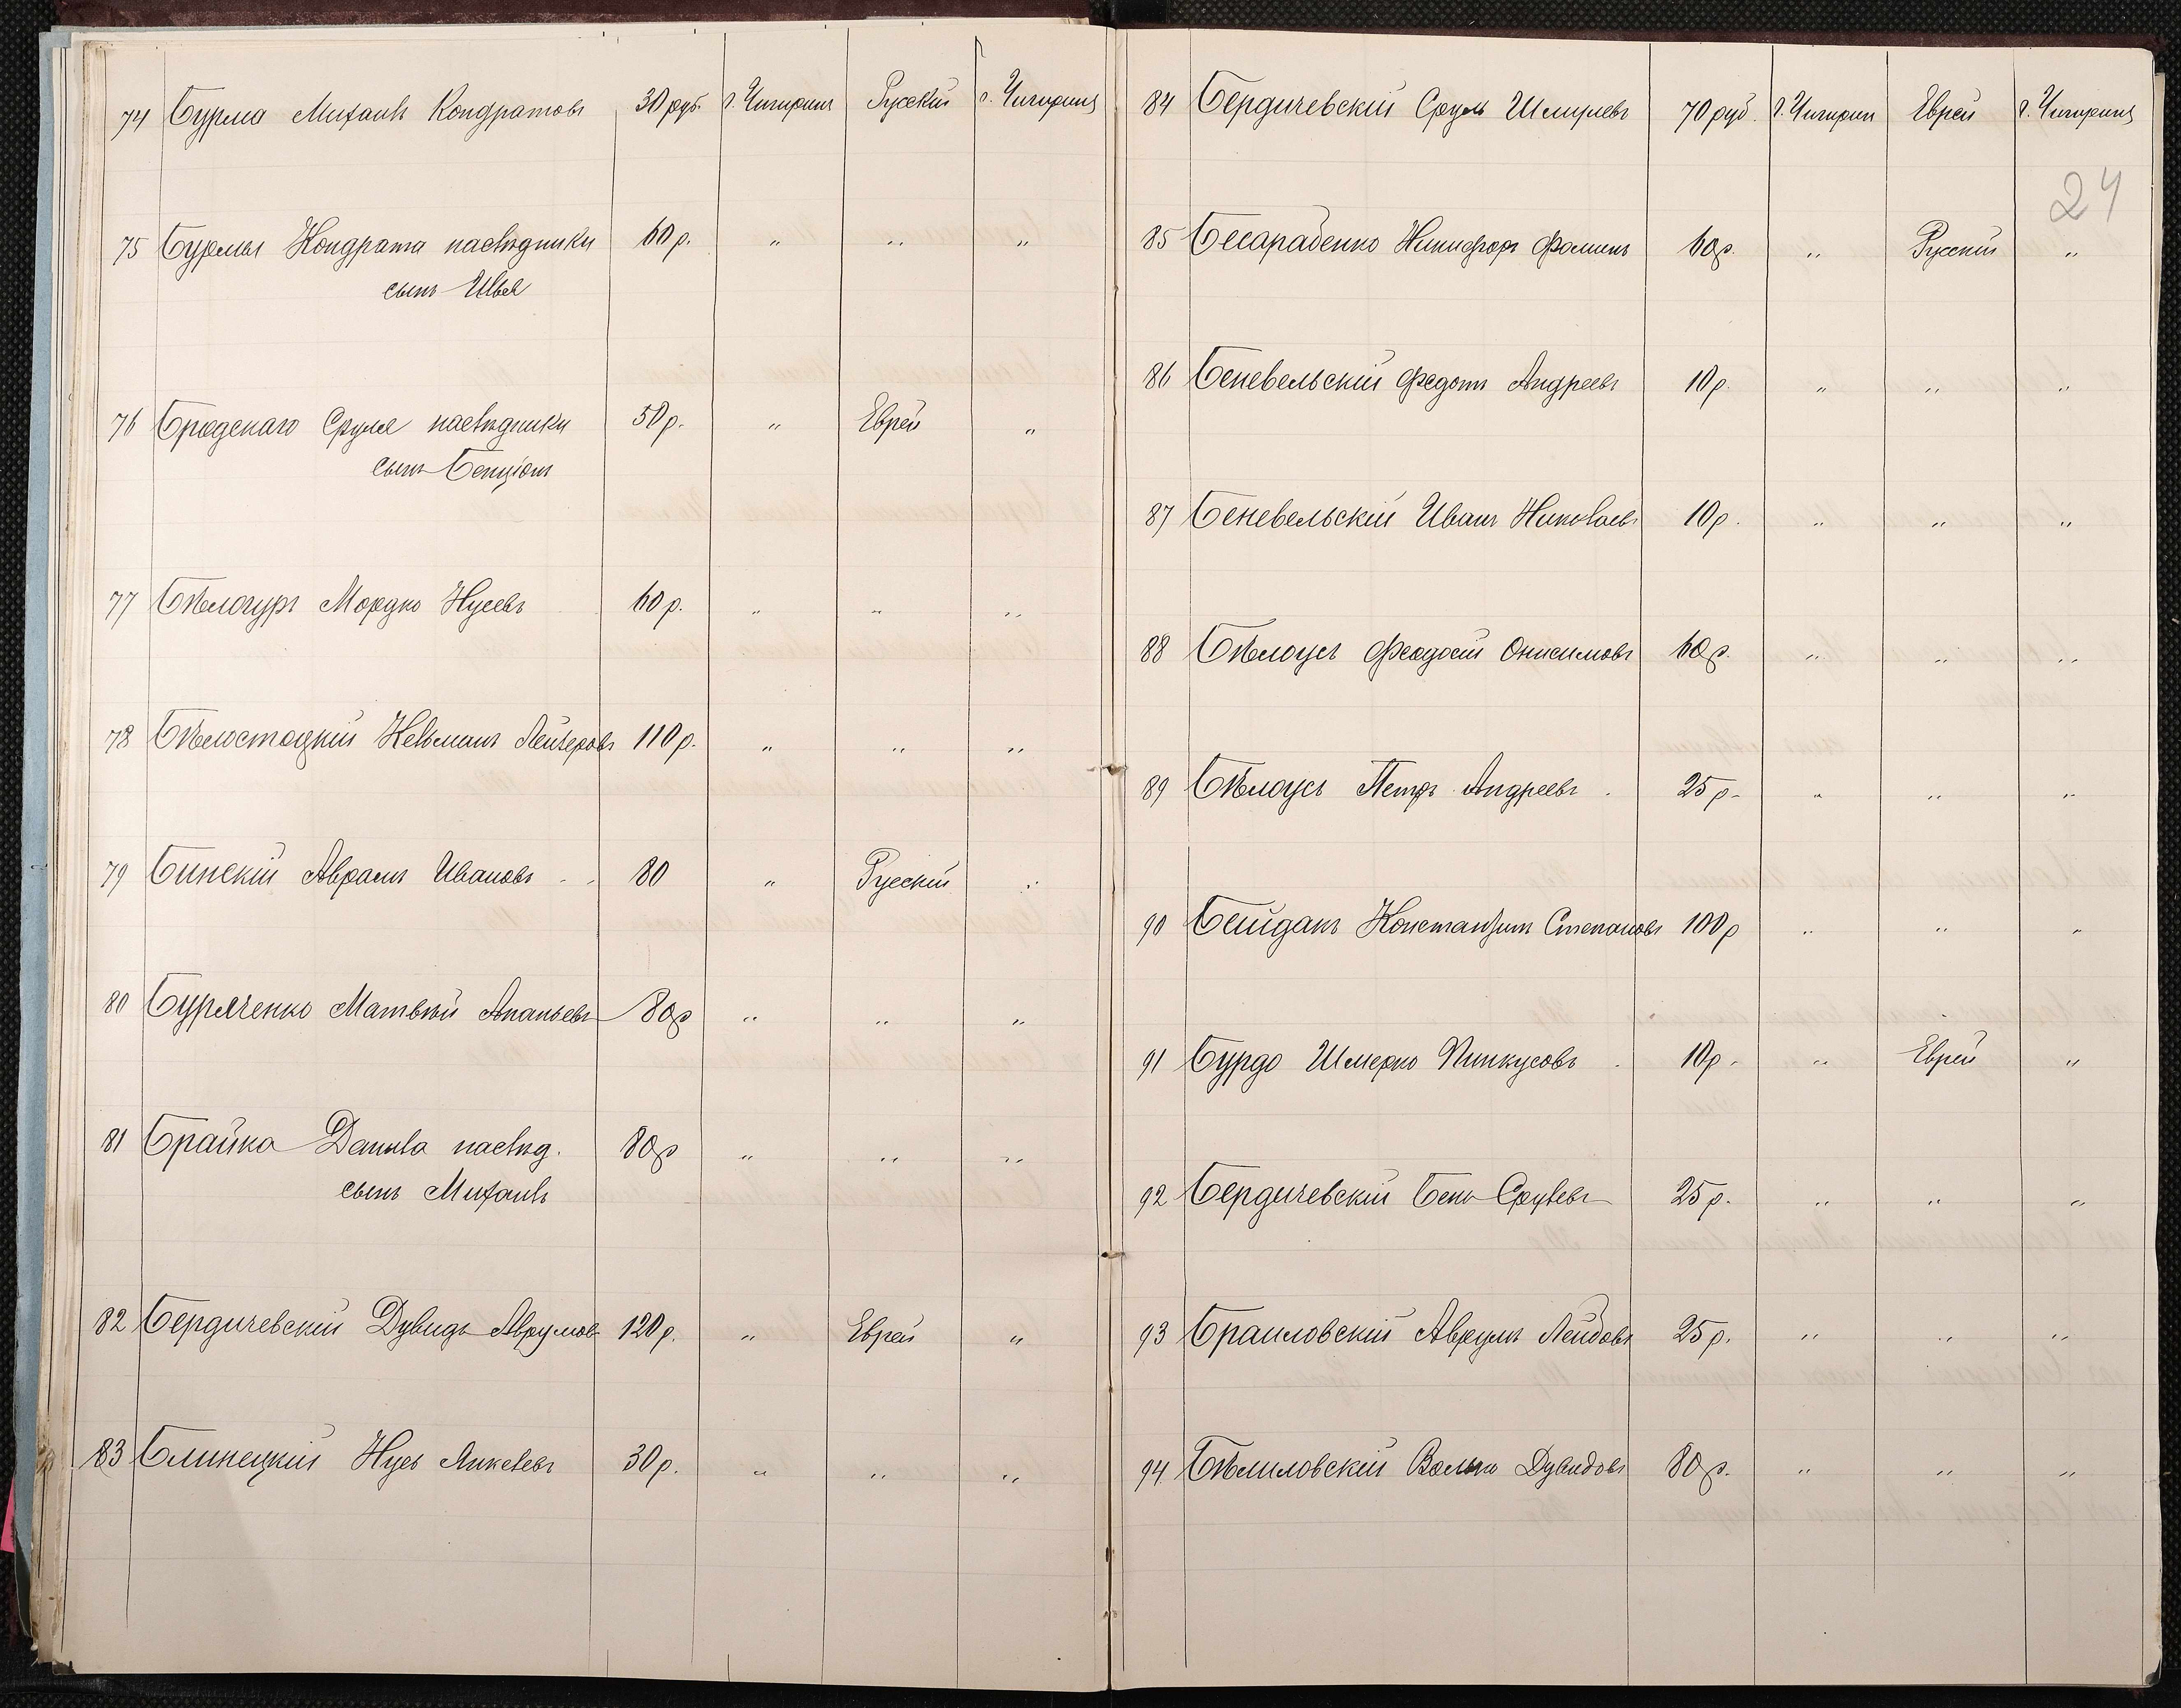 74 Бурма Михаилъ Кондратовъ 30 руб. г. Чигирин Русскій г. Чигиринѣ
75 Бурмы Кондрата наслѣдники 60 р. " " "
сынъ Илья
76 Бродскаго Сруля наслѣдники 50 р. " Еврей "
сынъ Бенціонъ
77 Бѣлогуръ Мордко Нусевъ 60 р. " " "
78 Бѣлостоцкій Кельманъ Лейзеровъ 110 р. " " "
79 Бинскій Аврамъ Ивановъ 80 " Русскій "
80 Буряченко Матвѣй Ананьевъ 80 р " " "
81 Брайка Данила наслѣд. 80 р " " "
сынъ Михаилъ
82 Бердичевскій Дувидъ Аврумов 120 р. " Еврей "
83 Блинецкій Нусь Янкелевъ 30 р. " " "
84 Бердичевскій Сруль Шмулевъ 70 руб. г. Чигирин Еврей г. Чигиринѣ
24
85 Бесарабенко Никифоръ Фоминъ 60 р. " Русскій "
86 Беневельскій Федотъ Андреевъ 10 р. " " "
87 Беневельскій Иванъ Николаевъ 10 р. " " "
88 Бѣлоусъ Феодосій Онисимовъ 60 р. " " "
89 Бѣлоусъ Петръ Андреевъ 25 р. " " "
90 Бейданъ Константинъ Степановъ 100 р " " "
91 Бурдо Шмерко Пинкусовъ 10 р. " Еврей "
92 Бердичевскій Бень Срулевъ 25 р. " " "
93 Браиловскій Аврумъ Лейбовъ 25 р. " " "
94 Бѣлиловскій Волько Дувидовъ 80 р. " " "